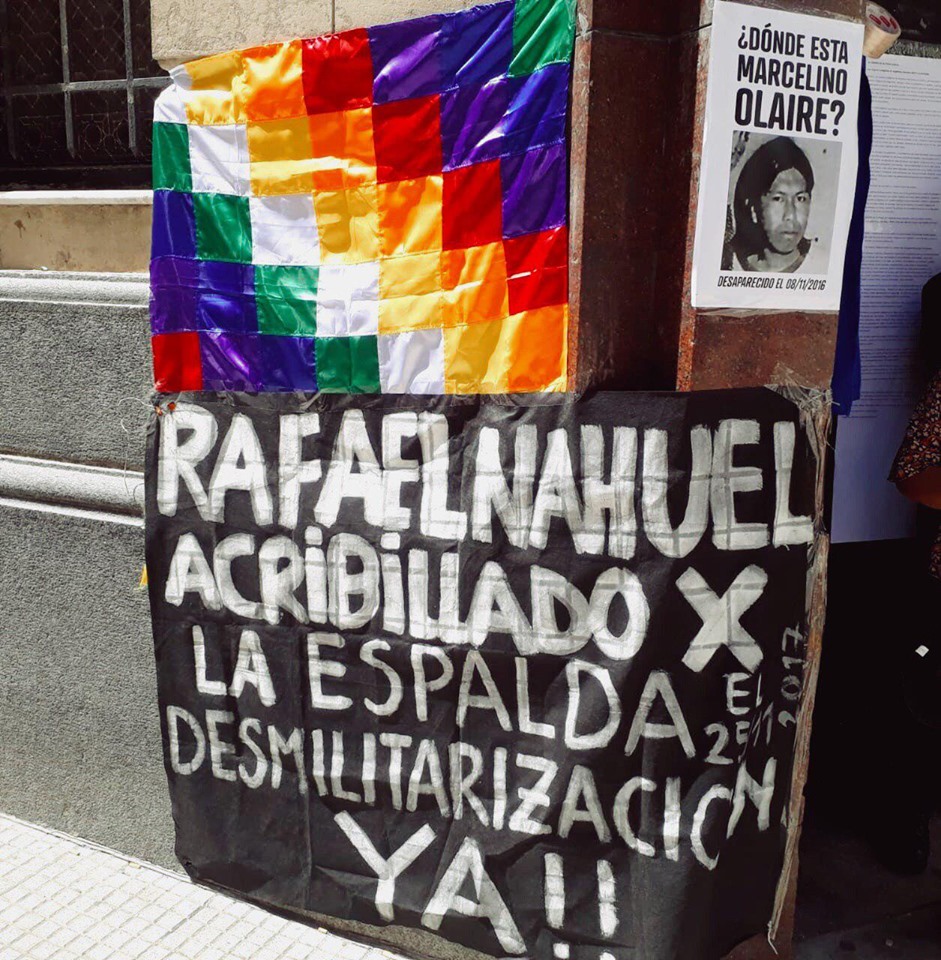 ¿DÓNDE ESTA
MARCELINO
OLAIRE?
DESAPARECIDO EL 08/11/2016
RAFAEL NAHUEL
ACRiBiLLADO X
LA ESPALDA EL
25 11 2017
DESMILITARIZACION
YA!!